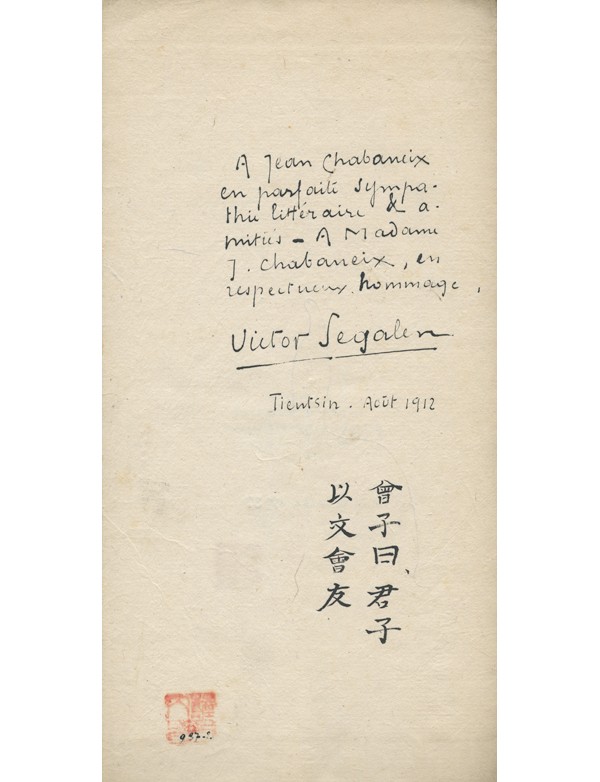 A Jean Chabaneix
en parfaite sympa-
thie littéraire & a-
mitiés – A Madame
J. Chabaneix, en
respectueux hommage,
Victor Segalen
Tientsin. Août 1912
曾子曰、君子
以文會友